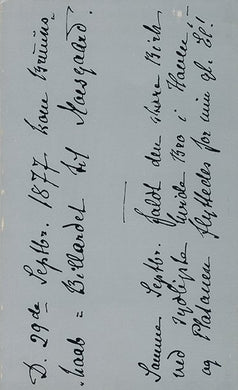 D. 29de Septbr. 1877 kom Brüünn=
"saab = Billardet til Moesgaard.
Samme Septbr. faldt den store Birk
ved Sydligste hvide Bro i Haven!
og Platanen flyttedes for min gl. H!